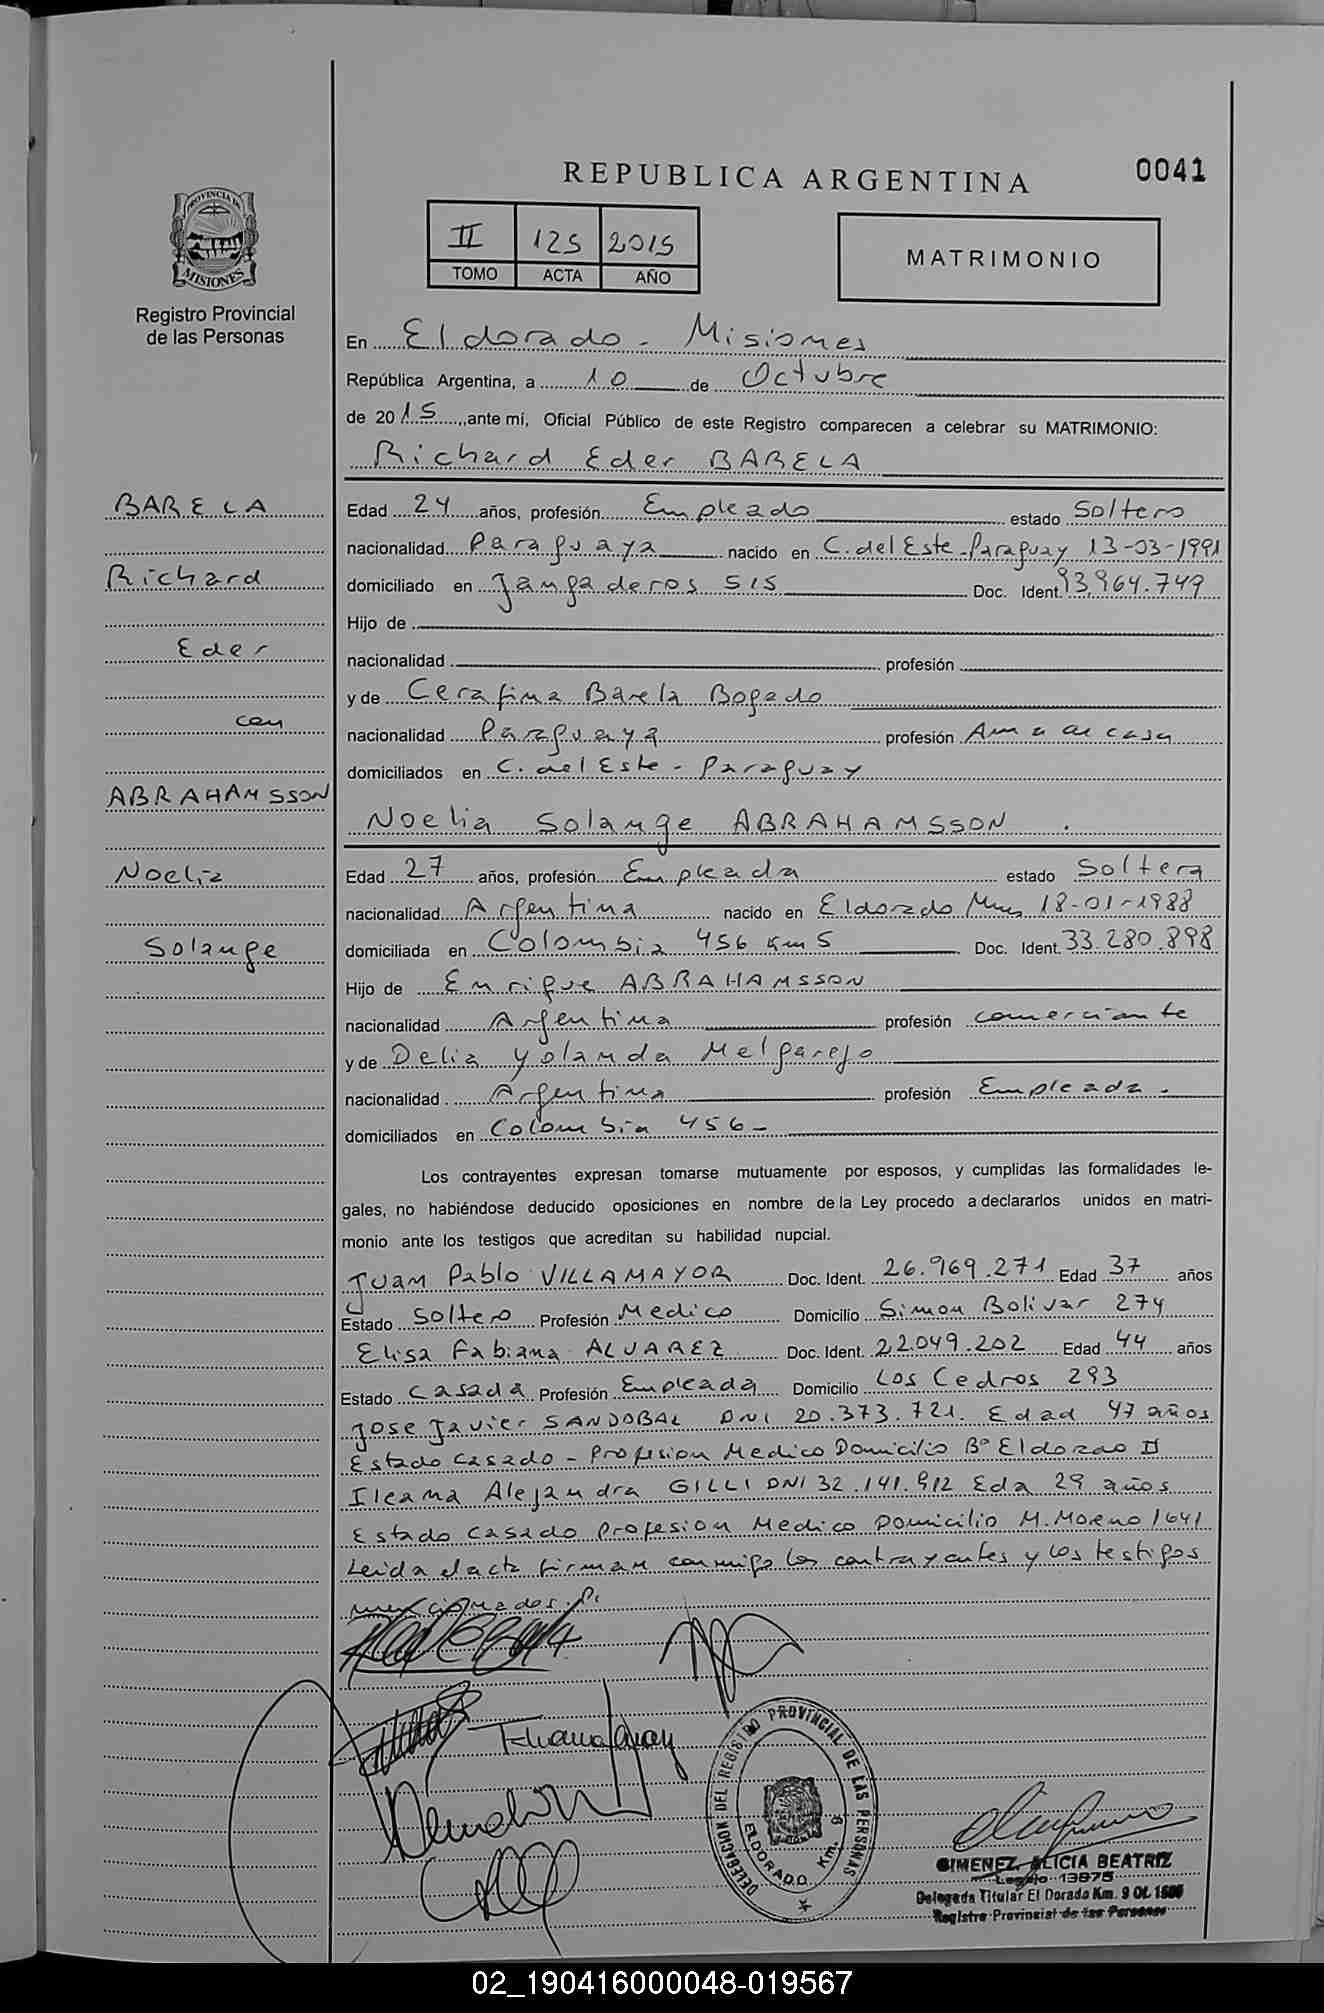 REPUBLICA ARGENTINA
0041
PROVINCIA DE
MISIONES
Registro Provincial
de las Personas
II 125 2015
TOMO ACTA AÑO
MATRIMONIO
En Eldorado - Misiones
República Argentina, a 10 de Octubre
de 2015, ante mí, Oficial Público de este Registro comparecen a celebrar su MATRIMONIO:
Richard Eder BARELA
BARELA
Richard
Eder
con
ABRAHAMSSON
Noelia
Solange
Edad 24 años, profesión Empleado estado Soltero
nacionalidad Paraguaya nacido en C. del Este - Paraguay 13-03-1991
domiciliado en Jangaderos 515 Doc. Ident. 93.964.749
Hijo de
nacionalidad profesión
y de Cerafina Barela Bogado
nacionalidad Paraguaya profesión Ama de casa
domiciliados en C. del Este - Paraguay
Noelia Solange ABRAHAMSSON .
Edad 27 años, profesión Empleada estado Soltera
nacionalidad Argentina nacido en Eldorado Mnes 18-01-1988
domiciliada en Colombia 456 Km 5 Doc. Ident. 33.280.898
Hijo de Enrique ABRAHAMSSON
nacionalidad Argentina profesión comerciante
y de Delia Yolanda Melgarejo
nacionalidad Argentina profesión Empleada -
domiciliados en Colombia 456 -
Los contrayentes expresan tomarse mutuamente por esposos, y cumplidas las formalidades le-
gales, no habiéndose deducido oposiciones en nombre de la Ley procedo a declararlos unidos en matri-
monio ante los testigos que acreditan su habilidad nupcial.
Juan Pablo VILLAMAYOR Doc. Ident. 26.969.271 Edad 37 años
Estado Soltero Profesión Medico Domicilio Simon Bolivar 274
Elisa Fabiana ALVAREZ Doc. Ident. 22.049.202 Edad 44 años
Estado Casada Profesión Empleada Domicilio Los Cedros 293
Jose Javier SANDOBAL DNI 20.373.721. Edad 47 años
Estado Casado - Profesion Medico Domicilio Bº Eldorado II
Ileana Alejandra GILLI DNI 32.141.912 Eda 29 años
Estado Casado Profesion Medico Domicilio M. Moreno 1641
Leida el acta firman conmigo los contrayentes y los testigos
mencionados.
DELEGACION DEL REGISTRO PROVINCIAL DE LAS PERSONAS
ELDORADO Km. 9
GIMENEZ, ALICIA BEATRIZ
Legajo 13975
Delegada Titular El Dorado Km. 9 Of.
Registro Provincial de las Personas
02_190416000048-019567